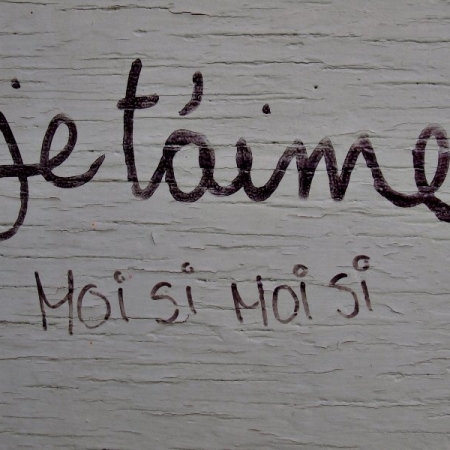 je t'aime
MOi Si MOi Si